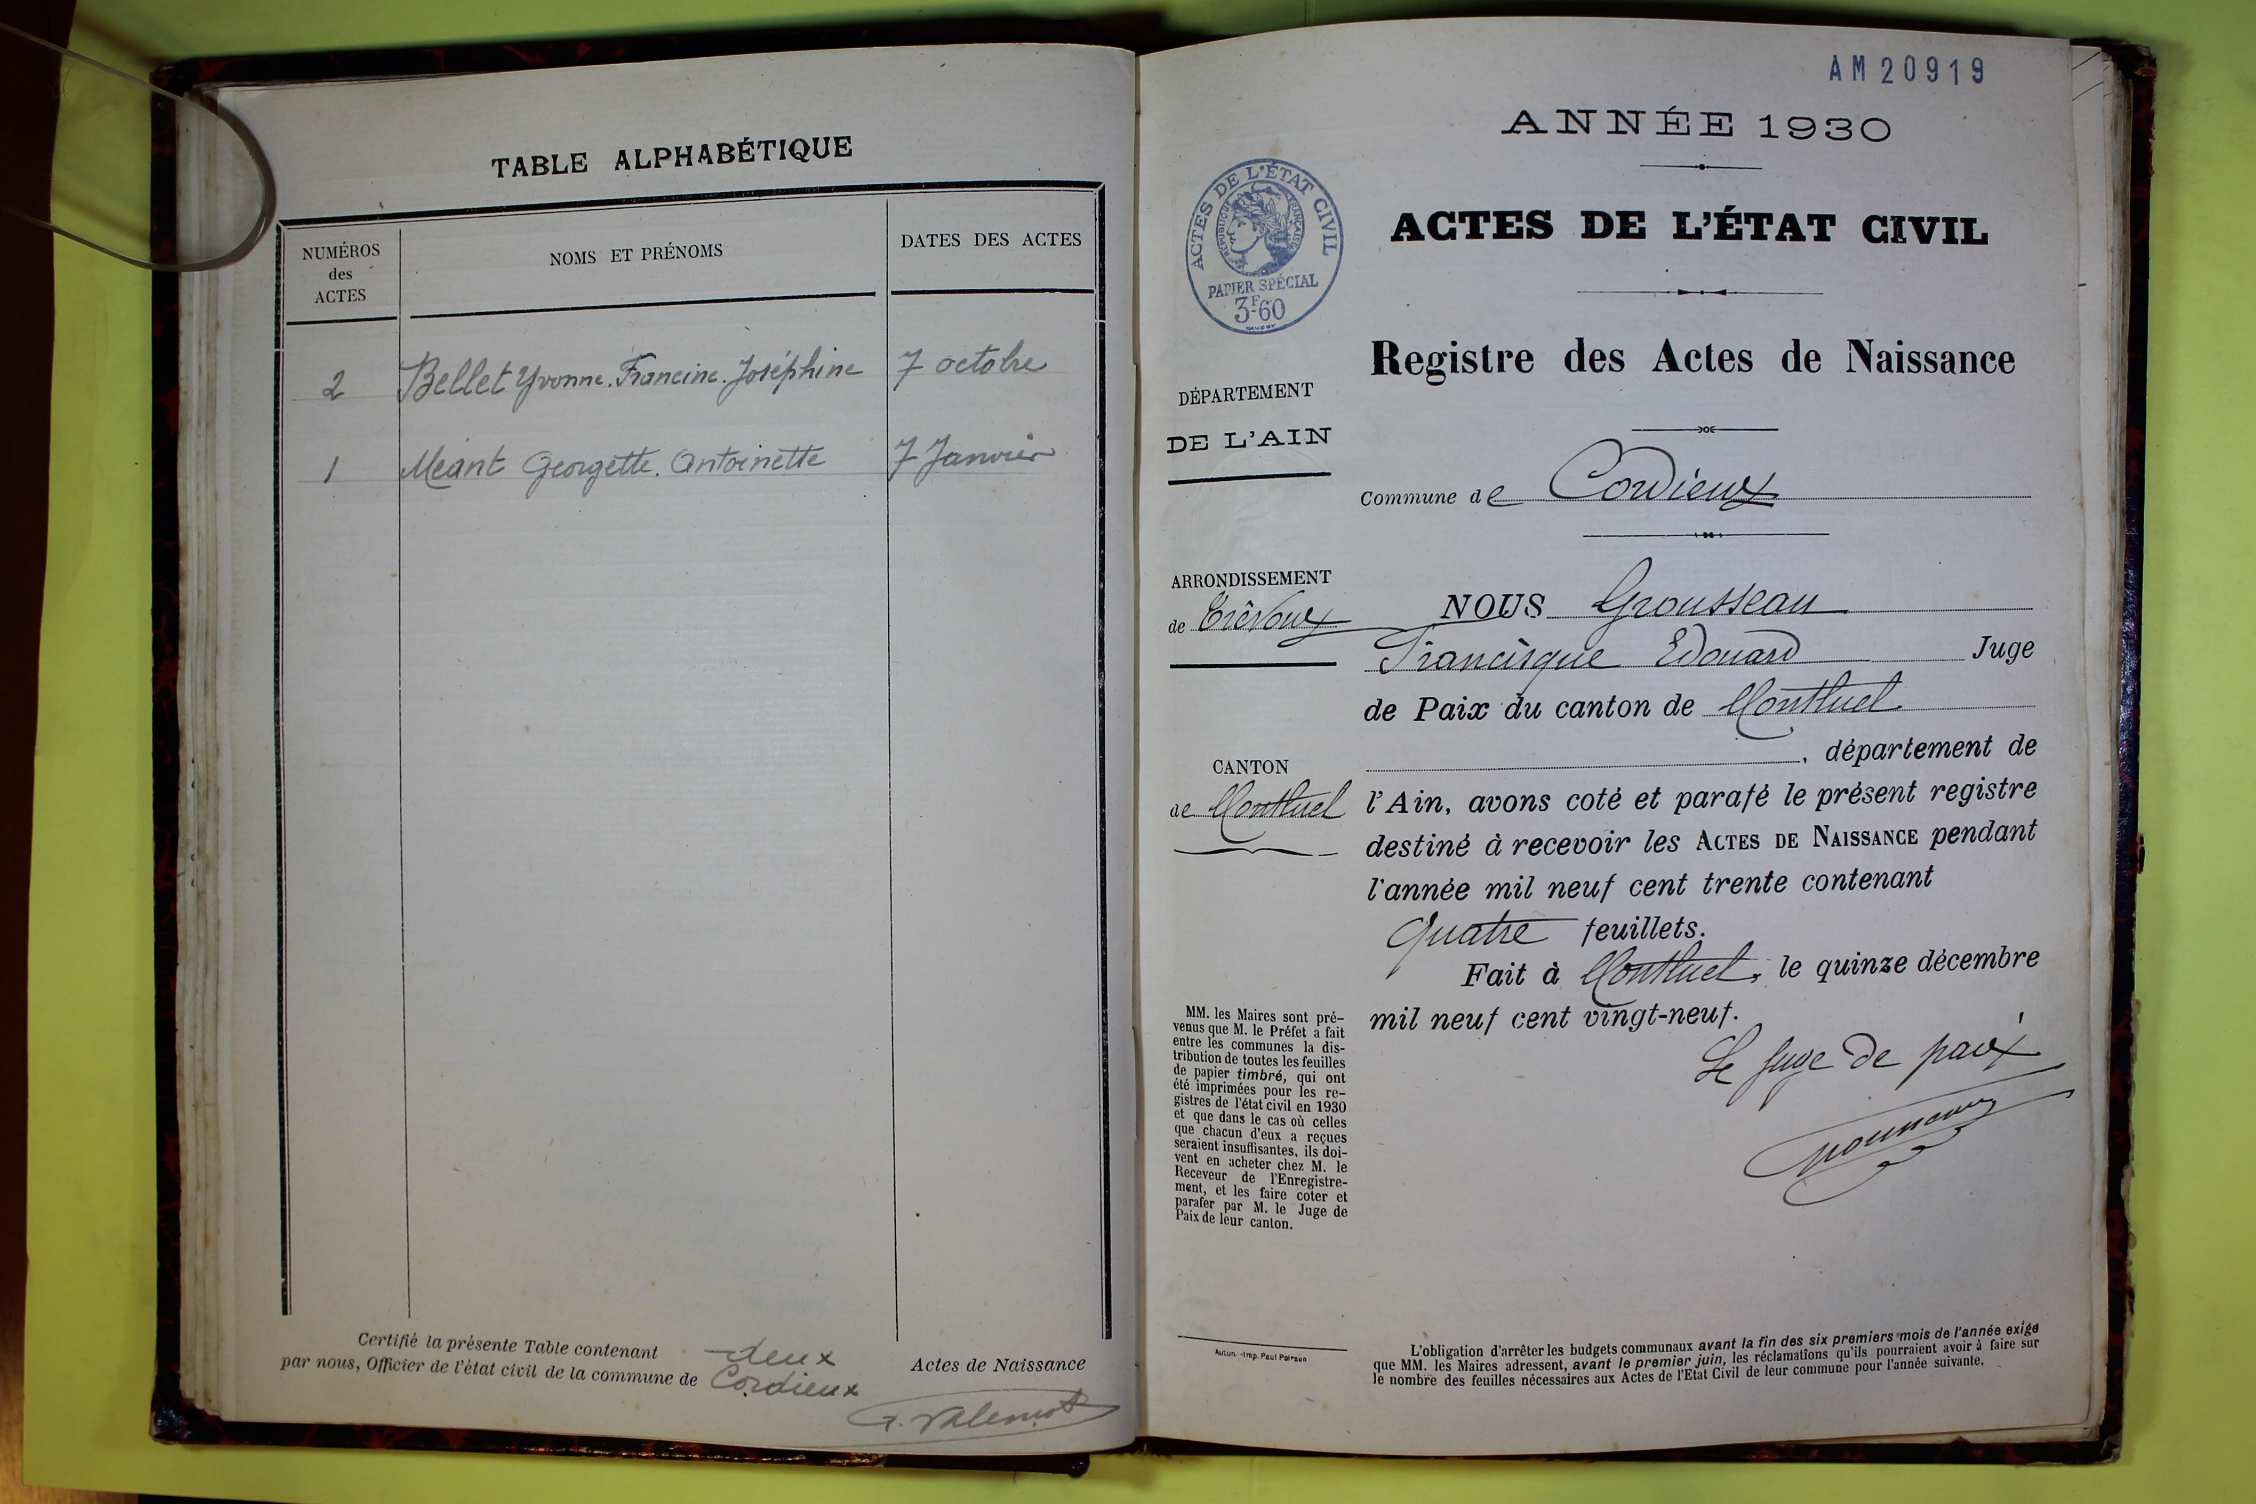 TABLE ALPHABÉTIQUE
NUMÉROS
des
ACTES
NOMS ET PRÉNOMS
DATES DES ACTES
2 Bellet Yvonne. Francine. Joséphine 7 octobre
1 Méant Georgette. Antoinette 7 Janvier
Certifié la présente Table contenant deux Actes de Naissance
par nous, Officier de l'état civil de la commune de Cordieux
AM20919
ANNÉE 1930
ACTES DE L'ÉTAT CIVIL
RÉPUBLIQUE FRANÇAISE
PAPIER SPÉCIAL
3F60
ACTES DE L'ÉTAT CIVIL
Registre des Actes de Naissance
DÉPARTEMENT
DE L'AIN
Commune de Cordieux
ARRONDISSEMENT
de Trévoux
CANTON
de Montluel
NOUS Grousseau
Francisque Edouard Juge
de Paix du canton de Montluel
, département de
l'Ain, avons coté et parafé le présent registre
destiné à recevoir les ACTES DE NAISSANCE pendant
l'année mil neuf cent trente contenant
Quatre feuillets.
Fait à Montluel, le quinze décembre
mil neuf cent vingt-neuf.
Le Juge de paix
MM. les Maires sont pré-
venus que M. le Préfet a fait
entre les communes la dis-
tribution de toutes les feuilles
de papier timbré, qui ont
été imprimées pour les re-
gistres de l'état civil en 1930
et que dans le cas où celles
que chacun d'eux a reçues
seraient insuffisantes, ils doi-
vent en acheter chez M. le
Receveur de l'Enregistre-
ment, et les faire coter et
parafer par M. le Juge de
Paix de leur canton.
L'obligation d'arrêter les budgets communaux avant la fin des six premiers mois de l'année exige
que MM. les Maires adressent, avant le premier juin, les réclamations qu'ils pourraient avoir à faire sur
le nombre des feuilles nécessaires aux Actes de l'Etat Civil de leur commune pour l'année suivante.